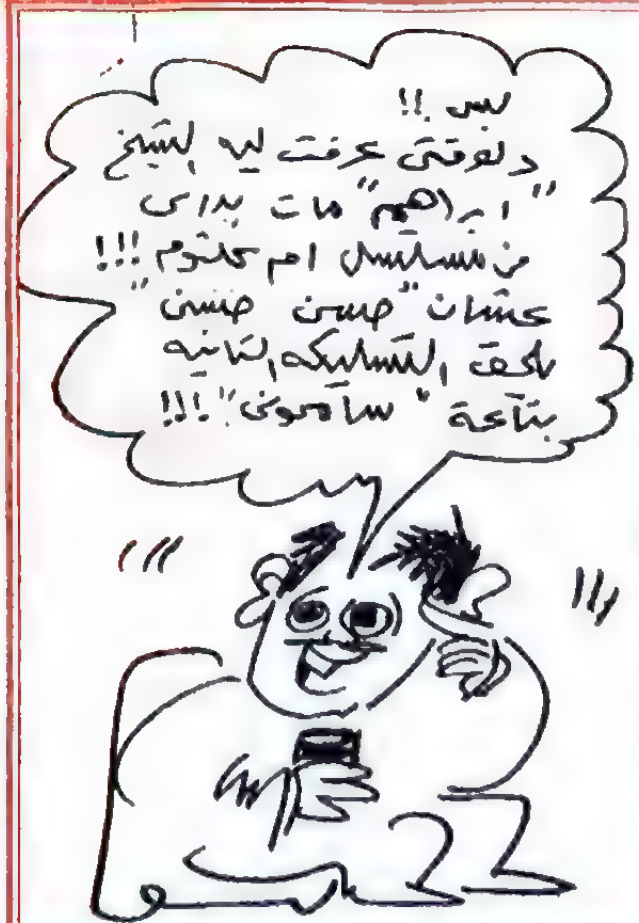 بس !!
دلوقتى عرفت ليه الشيخ
"ابراهيم" مات بدرى
من مسلسل ام كلثوم !!!
عشان "حسن حسنى"
يلحق التانيه
بتاعة "سامحونى" !!!